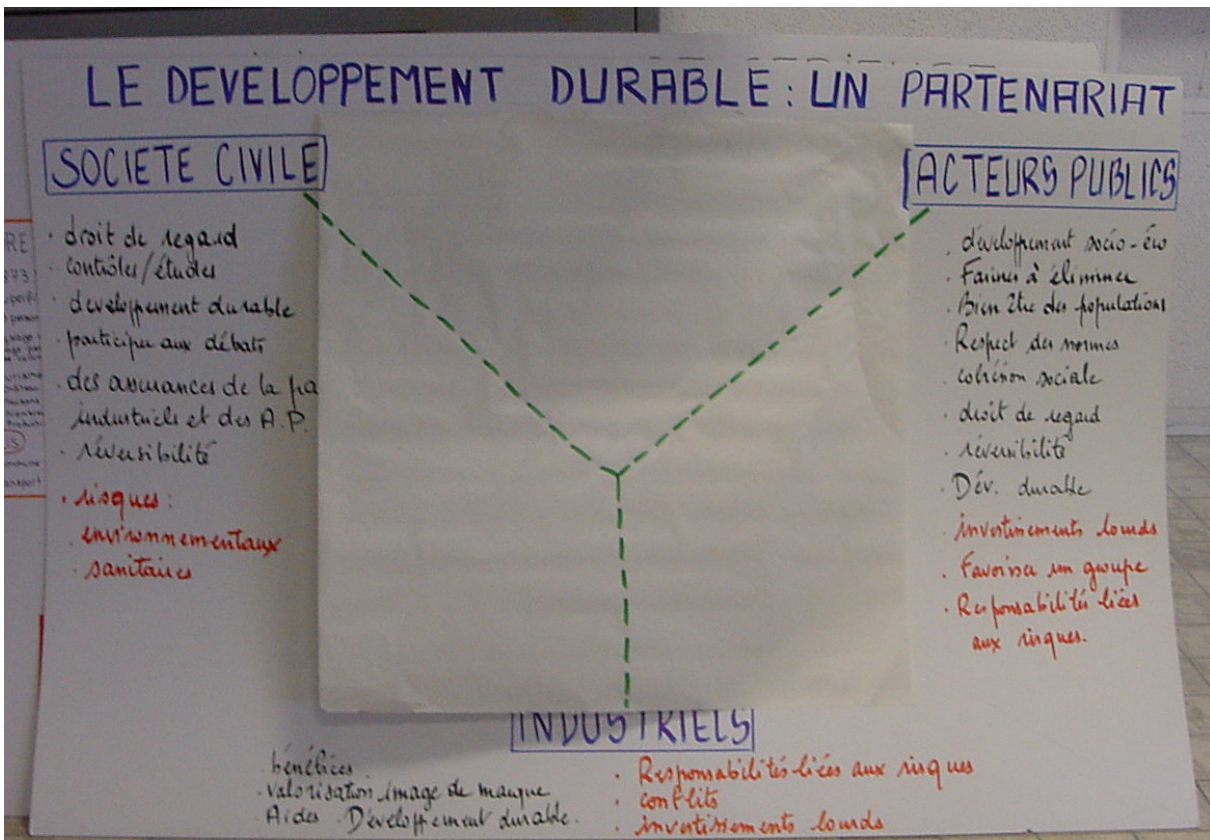 LE DEVELOPPEMENT DURABLE : UN PARTENARIAT
SOCIETE CIVILE
· droit de regard
· contrôles/études
· developpement durable
· participer aux débats
· des assurances de la pa
industriels et des A.P.
· réversibilité
· risques :
· environnementaux
· sanitaires
ACTEURS PUBLICS
· développement socio-éco
· Farines à éliminer
· Bien être des populations
· Respect des normes
· cohésion sociale
· droit de regard
· réversibilité
· Dév. durable
· investissements lourds
· Favoriser un groupe
· Responsabilités liées
aux risques.
INDUSTRIELS
· bénéfices.
· valorisation image de marque
· Aides. Développement durable.
· Responsabilités liées aux risques
· conflits
· investissements lourds
RE